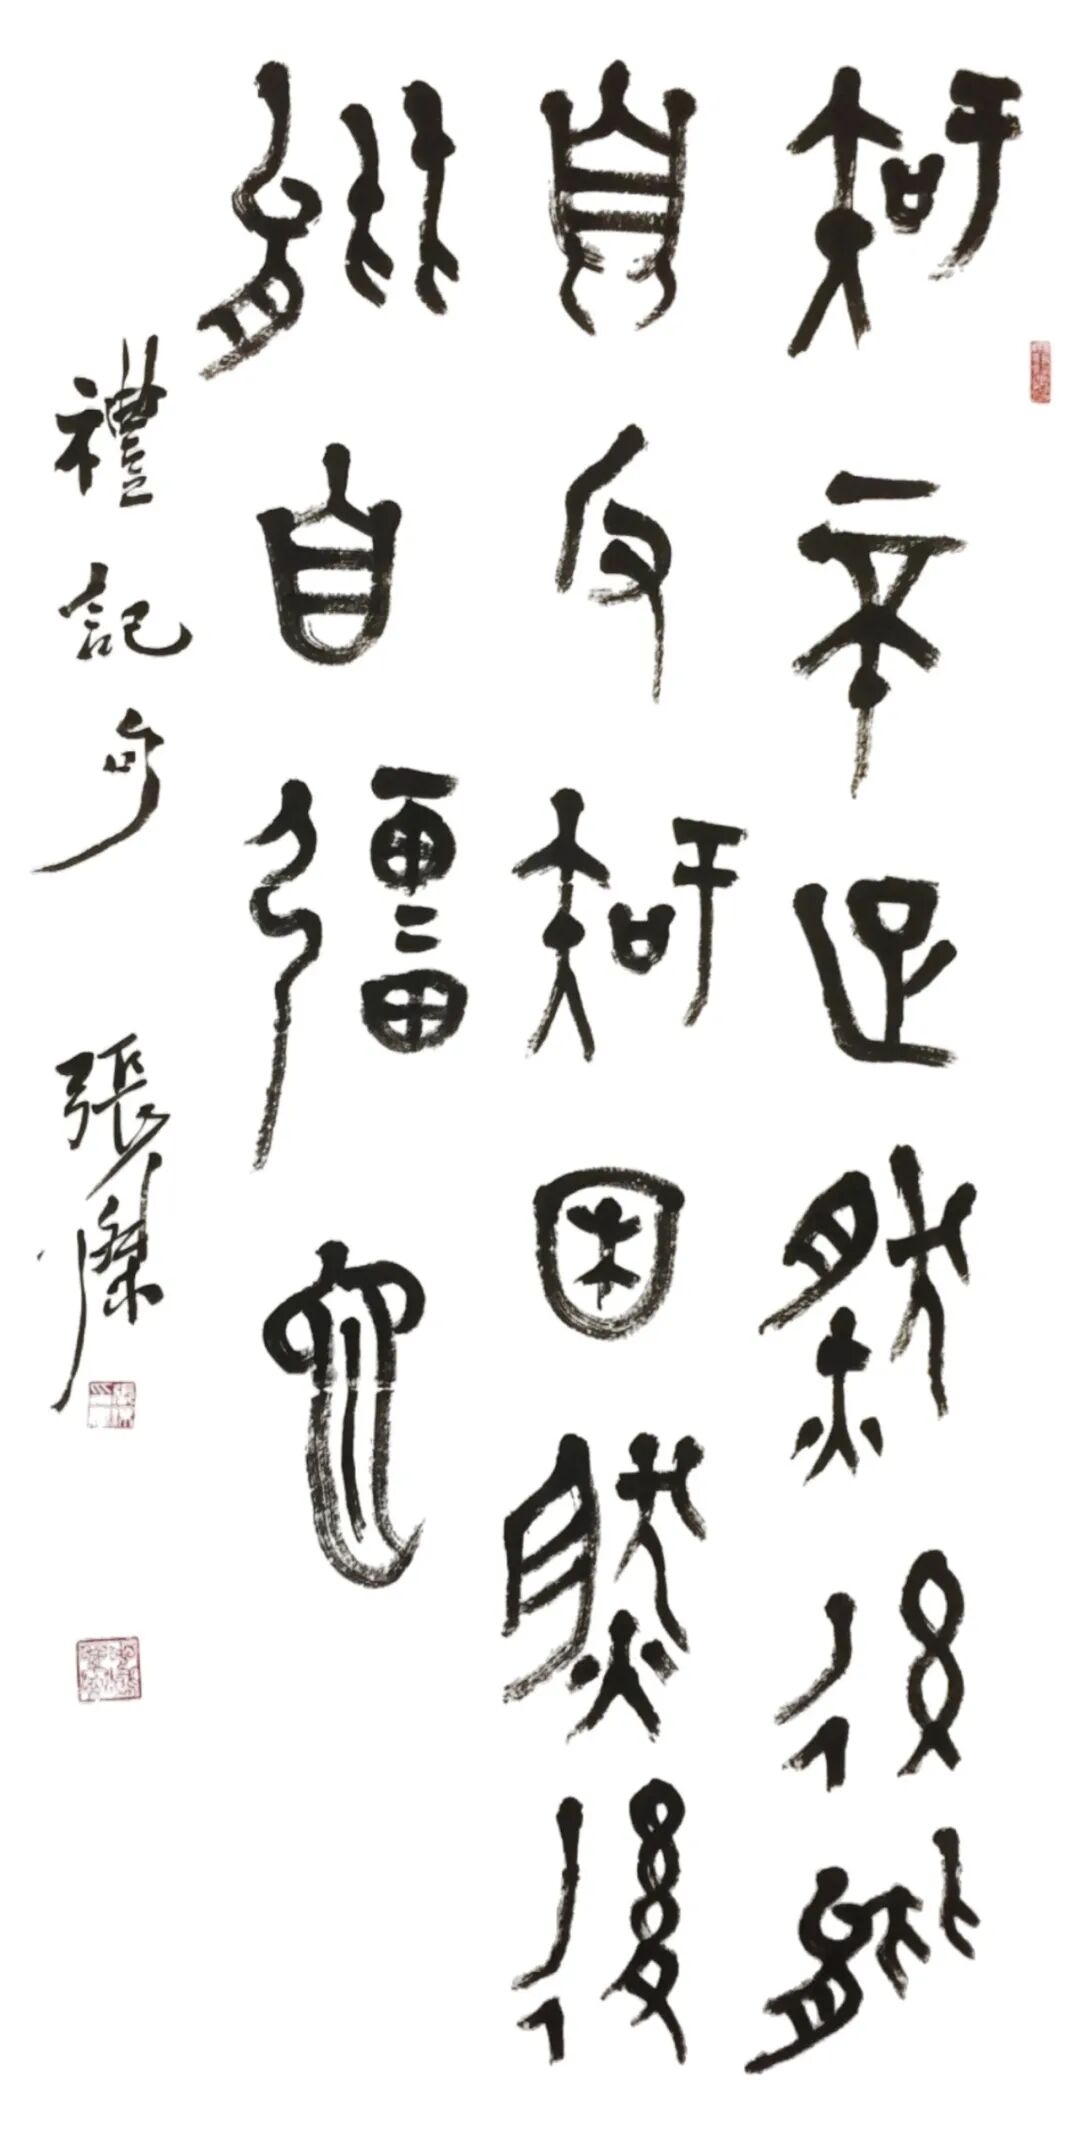 知不足然後能
自反知困然後
能自彊也
禮記句 張傑